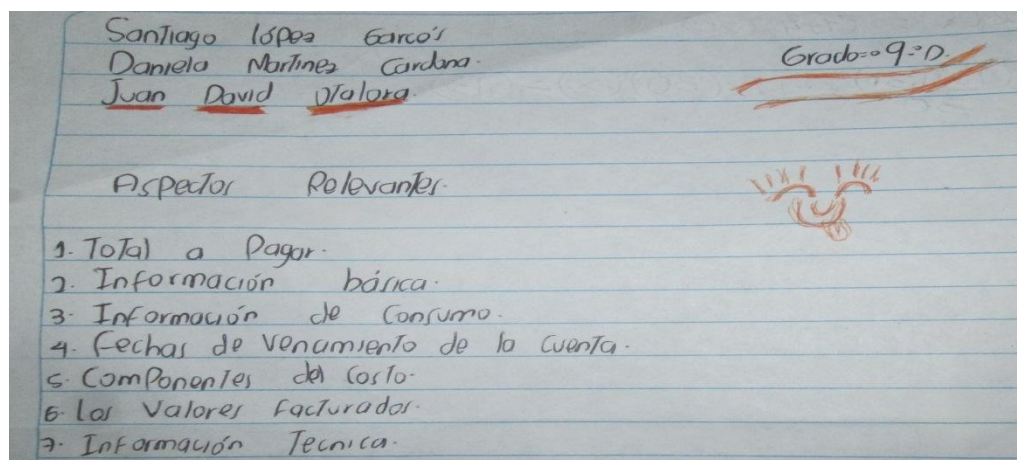 Santiago lópez Garcés
Daniela Martinez Cardona.
Grado=° 9-°D.
Juan David Otalora.
Aspectos Relevantes.
1. Total a Pagar.
2. Información básica.
3. Información de Consumo.
4. Fechas de Vencimiento de la Cuenta.
5. Componentes del Costo.
6. Los Valores Facturados.
7. Información Tecnica.